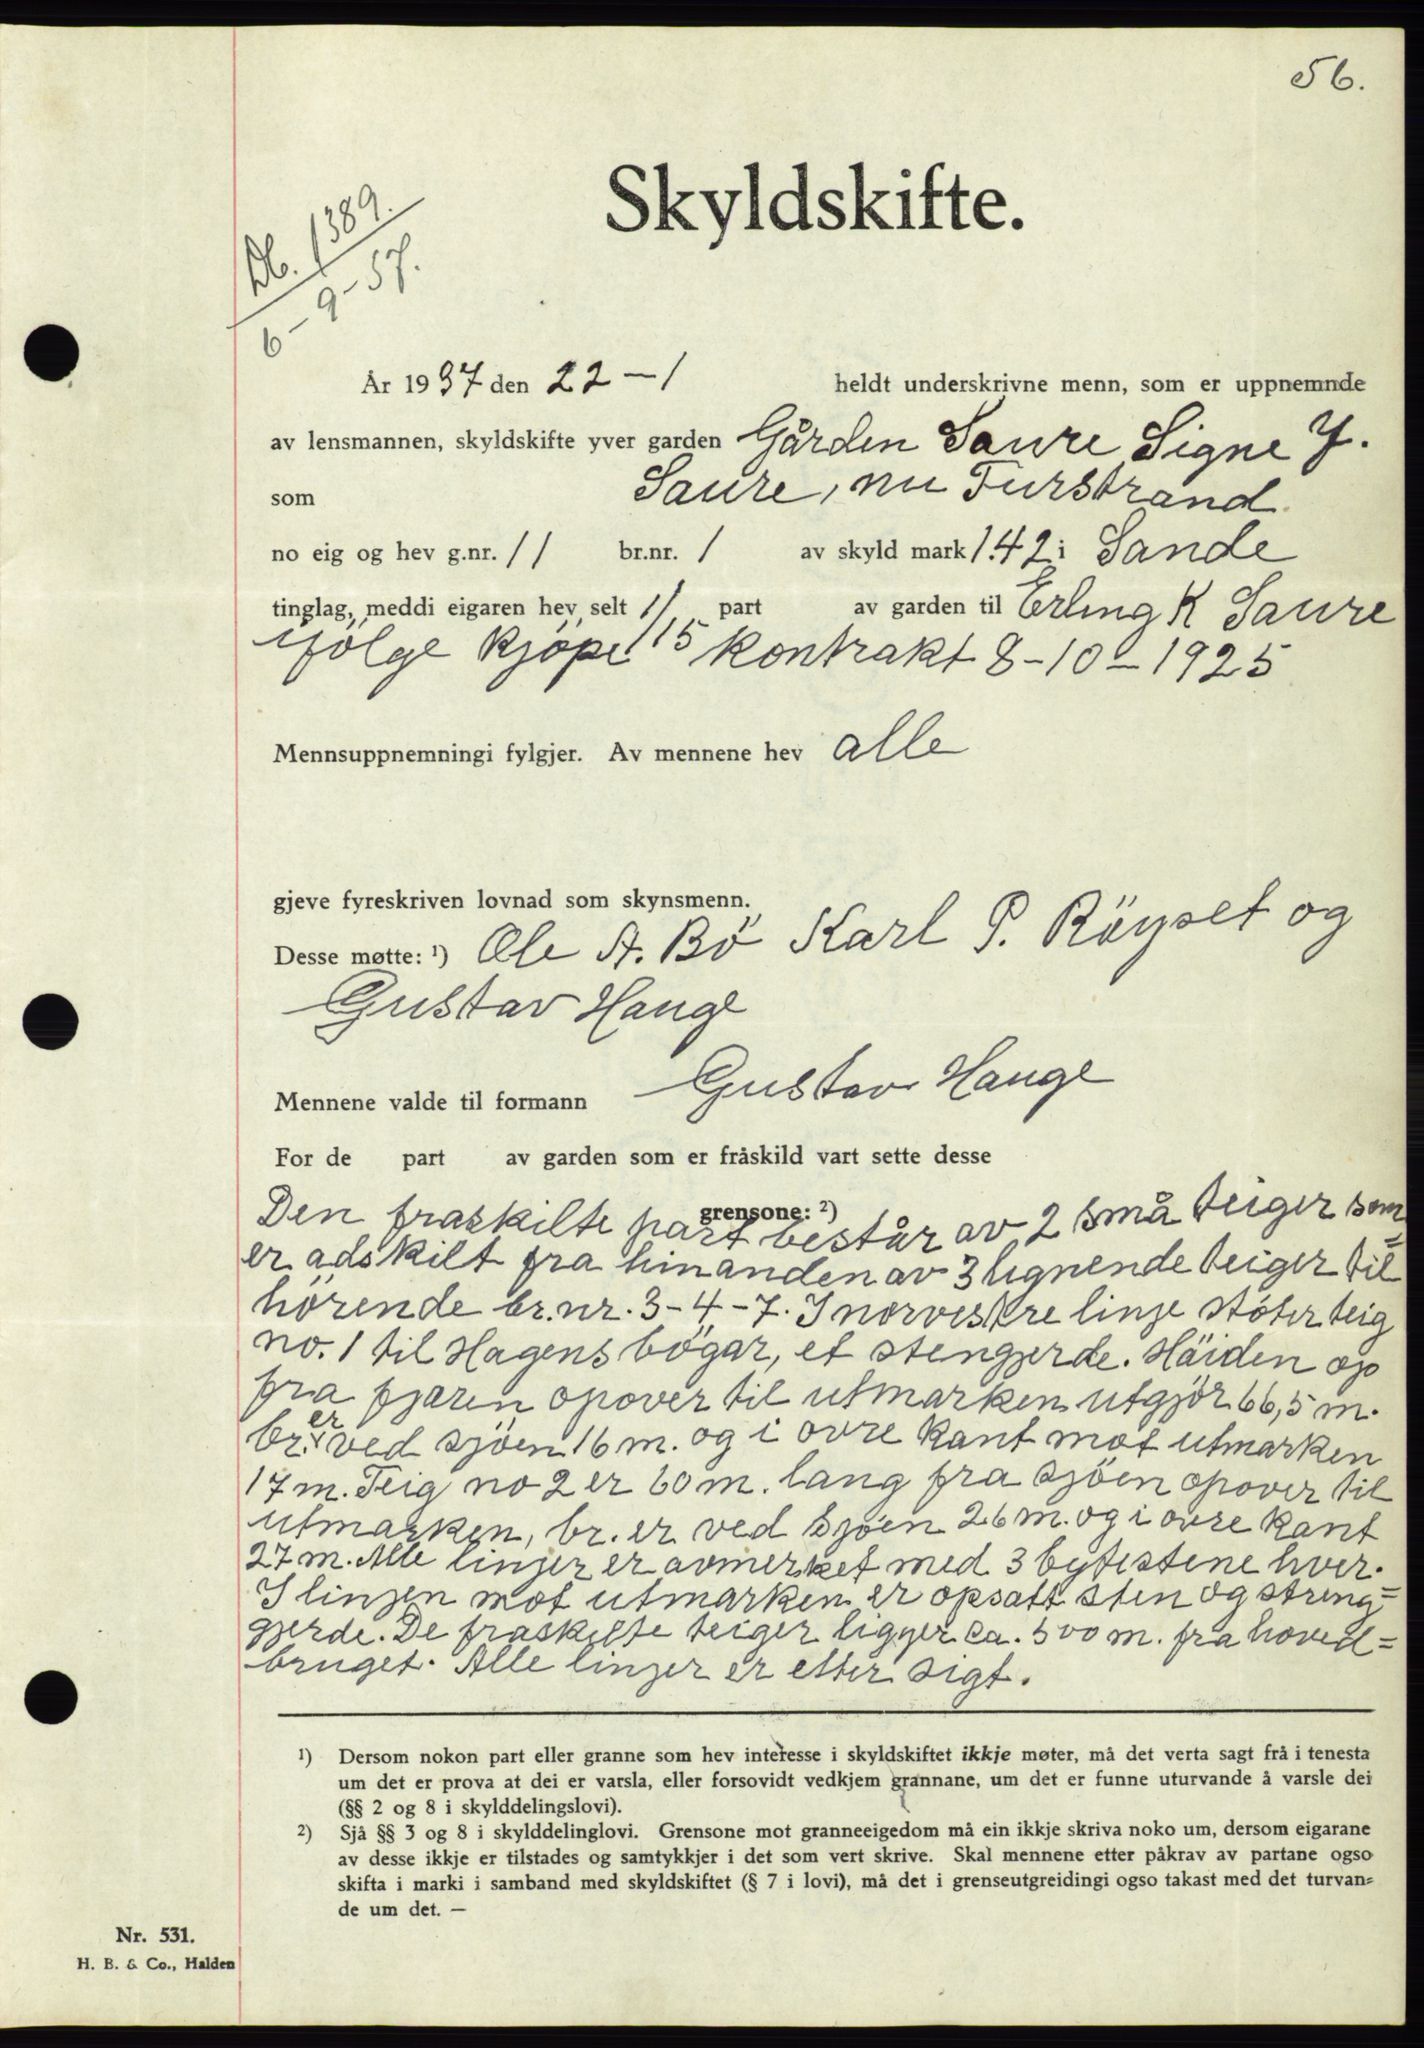 56.
Skyldskifte.
Db. 1389.
6-9-37.
År 1937 den 22-1 heldt underskrivne menn, som er uppnemnde
av lensmannen, skyldskifte yver garden Gården Saure Signe J.
som Saure, nu Furstrand
no eig og hev g.nr. 11 br.nr. 1 av skyld mark 1.42 i Sande
tinglag, meddi eigaren hev selt 1/15 part av garden til Erling K Saure
ifölge kjöpe kontrakt 8-10-1925
Mennsuppnemningi fylgjer. Av mennene hev alle
gjeve fyreskriven lovnad som skynsmenn.
Desse møtte: ¹) Ole A. Bö Karl P. Röyset og
Gustav Hauge
Mennene valde til formann Gustav Hauge
For de part av garden som er fråskild vart sette desse
grensone: ²)
Den fraskilte part består av 2 små teiger som
er adskilt fra hinanden av 3 lignende teiger til=
hörende br.nr. 3-4-7. I norvestre linje stöter teig
no. 1 til Hagens bögar, et stengjerde. Höiden op
fra fjæren opover til utmarken utgjör 66,5 m.
br. er ved sjöen 16 m. og i övre kant mot utmarken
17 m. Teig no 2 er 60 m. lang fra sjöen opover til
utmarken, br. er ved sjöen 26 m. og i övre kant
27 m. Alle linjer er avmerket med 3 bytestene hver.
I linjen mot utmarken er opsatt sten og streng=
gjerde. De fraskilte teiger ligger ca. 500 m. fra hoved=
bruget. Alle linjer er etter sigt.
¹) Dersom nokon part eller granne som hev interesse i skyldskiftet ikkje møter, må det verta sagt frå i tenesta
um det er prova at dei er varsla, eller forsovidt vedkjem grannane, um det er funne uturvande å varsle dei
(§§ 2 og 8 i skylddelingslovi).
²) Sjå §§ 3 og 8 i skylddelinglovi. Grensone mot granneeigedom må ein ikkje skriva noko um, dersom eigarane
av desse ikkje er tilstades og samtykkjer i det som vert skrive. Skal mennene etter påkrav av partane ogso
skifta i marki i samband med skyldskiftet (§ 7 i lovi), må det i grenseutgreidingi ogso takast med det turvan=
de um det. —
Nr. 531.
H. B. & Co., Halden